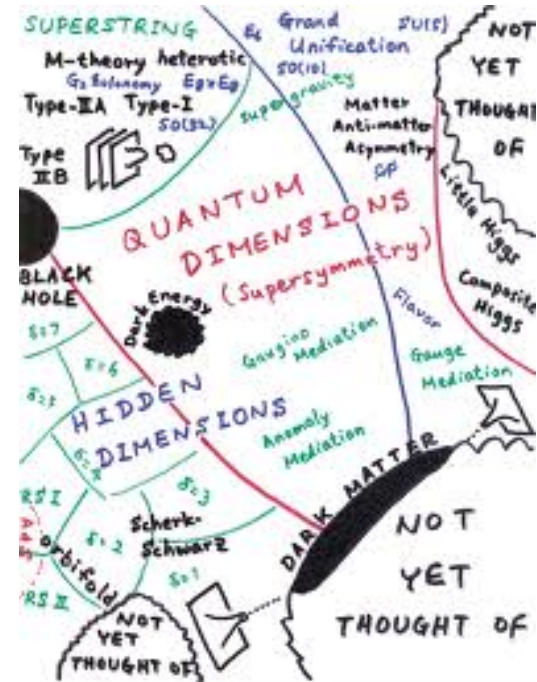 SUPERSTRING
M-theory heterotic
G₂ Holonomy E8×E8
Type-IIA Type-I
SO(32)
Type
IIB
E₆ Grand SU(5)
Unification
SO(10)
Supergravity
Matter
Anti-matter
Asymmetry
NOT
YET
THOUGHT
OF
Little Higgs
Composite
Higgs
QUANTUM
DIMENSIONS
(Supersymmetry)
BLACK
HOLE
Dark Energy
Flavor
Gaugino
Mediation
Gauge
Mediation
δ=7
δ=6
HIDDEN
DIMENSIONS
Anomaly
Mediation
δ=4
δ=3
DARK MATTER
RS I
AdS
orbifold
δ=2
Scherk-
Schwarz
RS II
δ=1
NOT
YET
THOUGHT OF
NOT
YET
THOUGHT OF